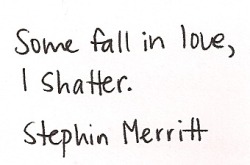 Some fall in love,
I shatter.
Stephin Merritt